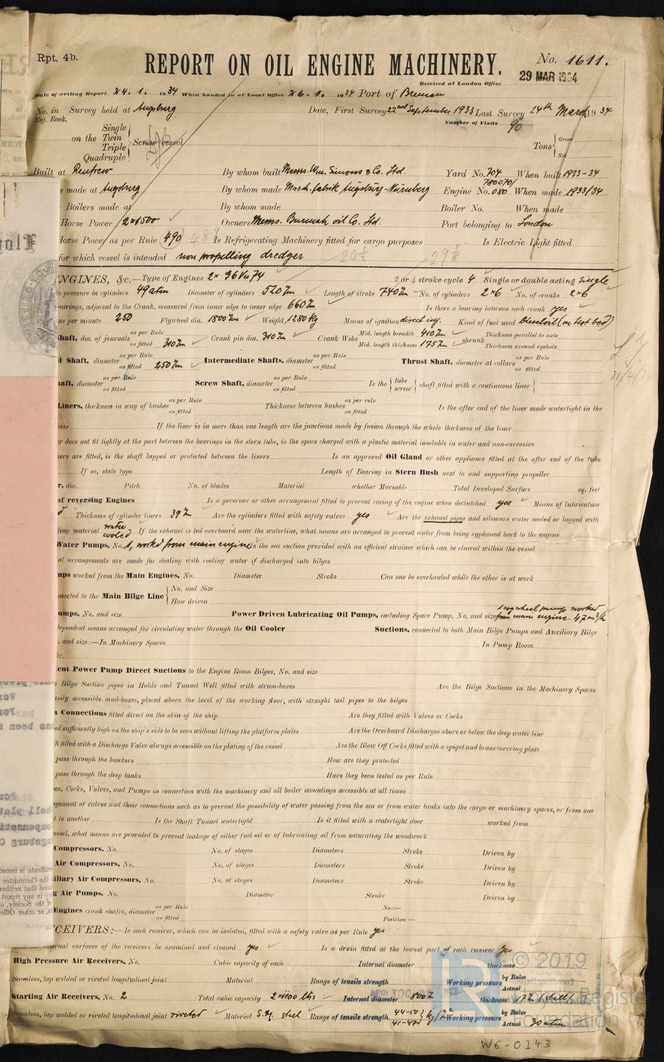 Rpt. 4b.
REPORT ON OIL ENGINE MACHINERY.
No. 1611.
Received at London Office
29 MAR 1934
Date of writing Report 24. 1. 1934 When handed in at Local Office 26. 1. 1934 Port of Bremen
No. in Survey held at Augsburg Date, First Survey 22nd September 1933 Last Survey 24th March 1934
Reg. Book. Number of Visits 90
Single
on the Twin
Triple
Quadruple
Screw vessel
Tons Gross
Net
Built at Renfrew By whom built Messrs Wm. Simons & Co. Ltd. Yard No. 704 When built 1933-34
s made at Augsburg By whom made Masch.fabrik Augsburg-Nürnberg Engine No. 780070/080 When made 1933/34
Boilers made at By whom made Boiler No. When made
Horse Power 2x500 Owners Messrs. Burmah Oil Co. Ltd. Port belonging to London
Horse Power as per Rule 490 Is Refrigerating Machinery fitted for cargo purposes Is Electric Light fitted
for which vessel is intended non propelling dredger
ENGINES, &c.—Type of Engines 2x G6Vu74 2 or 4 stroke cycle 4 Single or double acting single
n pressure in cylinders 49 atm Diameter of cylinders 520 Length of stroke 740 No. of cylinders 2x6 No. of cranks 2x6
bearings, adjacent to the Crank, measured from inner edge to inner edge 660 Is there a bearing between each crank yes
ns per minute 250 Flywheel dia. 1800 Weight 1280 kg Means of ignition direct inj. Kind of fuel used
Shaft, dia. of journals as per Rule as fitted 340 Crank pin dia. 340 Crank Webs Mid. length breadth 440 Mid. length thickness 175 shrunk Thickness parallel to axis Thickness around eyehole
l Shaft, diameter as per Rule as fitted 250 Intermediate Shafts, diameter as per Rule as fitted Thrust Shaft, diameter at collars as per Rule as fitted
aft, diameter as per Rule as fitted Screw Shaft, diameter as per Rule as fitted Is the tube screw shaft fitted with a continuous liner
Liners, thickness in way of bushes as per Rule as fitted Thickness between bushes as per rule as fitted Is the after end of the liner made watertight in the
If the liner is in more than one length are the junctions made by fusion through the whole thickness of the liner
er does not fit tightly at the part between the bearings in the stern tube, is the space charged with a plastic material insoluble in water and non-corrosive
ers are fitted, is the shaft lapped or protected between the liners Is an approved Oil Gland or other appliance fitted at the after end of the tube
If so, state type Length of Bearing in Stern Bush next to and supporting propeller
r, dia. Pitch No. of blades Material whether Moveable Total Developed Surface sq. feet
of reversing Engines Is a governor or other arrangement fitted to prevent racing of the engine when declutched yes Means of lubrication
Thickness of cylinder liners 39 Are the cylinders fitted with safety valves yes Are the exhaust pipes and silencers water cooled or lagged with
ing material water cooled If the exhaust is led overboard near the waterline, what means are arranged to prevent water from being syphoned back to the engine
Water Pumps, No. 1, worked from main engine Is the sea suction provided with an efficient strainer which can be cleared within the vessel
al arrangements are made for dealing with cooling water if discharged into bilges
mps worked from the Main Engines, No. Diameter Stroke Can one be overhauled while the other is at work
nnected to the Main Bilge Line No. and Size
How driven
umps, No. and size Power Driven Lubricating Oil Pumps, including Spare Pump, No. and size 1 cogwheel pump worked from main engine. 42 m³/h
dependent means arranged for circulating water through the Oil Cooler Suctions, connected to both Main Bilge Pumps and Auxiliary Bilge
, and size:—In Machinery Spaces In Pump Room
ent Power Pump Direct Suctions to the Engine Room Bilges, No. and size
Bilge Suction pipes in Holds and Tunnel Well fitted with strum-boxes Are the Bilge Suctions in the Machinery Spaces
sily accessible mud-boxes, placed above the level of the working floor, with straight tail pipes to the bilges
a Connections fitted direct on the skin of the ship Are they fitted with Valves or Cocks
d sufficiently high on the ship's side to be seen without lifting the platform plates Are the Overboard Discharges above or below the deep water line
h fitted with a Discharge Valve always accessible on the plating of the vessel Are the Blow Off Cocks fitted with a spigot and brass covering plate
pass through the bunkers How are they protected
pass through the deep tanks Have they been tested as per Rule
es, Cocks, Valves, and Pumps in connection with the machinery and all boiler mountings accessible at all times
ngement of valves and their connections such as to prevent the possibility of water passing from the sea or from water tanks into the cargo or machinery spaces, or from one
t to another Is the Shaft Tunnel watertight Is it fitted with a watertight door worked from
vessel, what means are provided to prevent leakage of either fuel oil or of lubricating oil from saturating the woodwork
Compressors, No. No. of stages Diameters Stroke Driven by
Air Compressors, No. No. of stages Diameters Stroke Driven by
iliary Air Compressors, No. No. of stages Diameters Stroke Driven by
g Air Pumps, No. Diameter Stroke Driven by
Engines crank shafts, diameter as per Rule as fitted No.:— Position:—
CEIVERS:—Is each receiver, which can be isolated, fitted with a safety valve as per Rule yes
ernal surfaces of the receivers be examined and cleaned yes Is a drain fitted at the lowest part of each receiver yes
High Pressure Air Receivers, No. Cubic capacity of each Internal diameter thickness
Seamless, lap welded or riveted longitudinal joint Material Range of tensile strength Working pressure by Rules Actual
Starting Air Receivers, No. 2 Total cubic capacity Internal diameter thickness
Seamless, lap welded or riveted longitudinal joint riveted Material S.M. steel Range of tensile strength 44-50 41-47 Working pressure by Rules Actual 30
© 2019
Lloyd's Register
Foundation
W6-0143